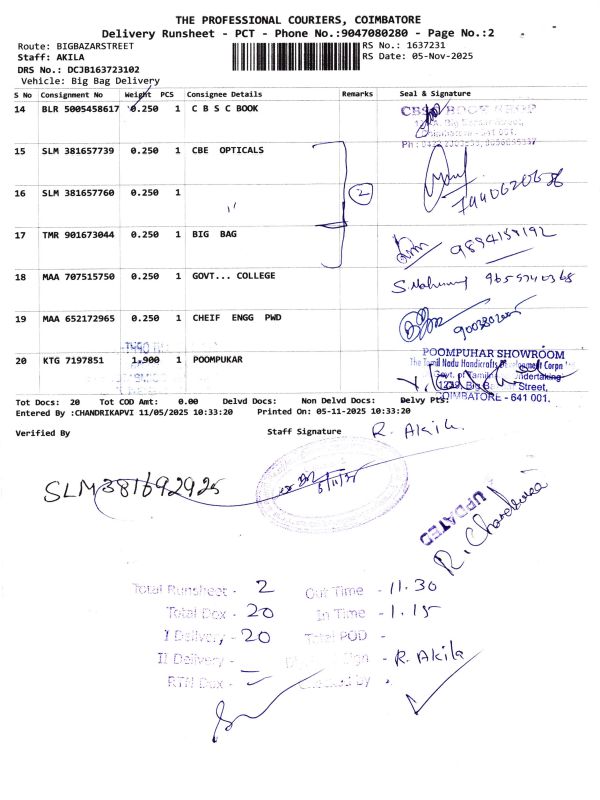 THE PROFESSIONAL COURIERS, COIMBATORE
Delivery Runsheet - PCT - Phone No.:9047080280 - Page No.:2
Route: BIGBAZARSTREET RS No.: 1637231
Staff: AKILA RS Date: 05-Nov-2025
DRS No.: DCJB163723102
Vehicle: Big Bag Delivery
S No Consignment No Weight PCS Consignee Details Remarks Seal & Signature
14 BLR 5005458617 0.250 1 C B S C BOOK
15 SLM 381657739 0.250 1 CBE OPTICALS
2
16 SLM 381657760 0.250 1 "
17 TMR 901673044 0.250 1 BIG BAG 9894159192
18 MAA 707515750 0.250 1 GOVT... COLLEGE
19 MAA 652172965 0.250 1 CHEIF ENGG PWD
20 KTG 7197851 1.900 1 POOMPUKAR
POOMPUHAR SHOWROOM
The Tamil Nadu Handicrafts Development Corpn
Street,
COIMBATORE - 641 001.
Tot Docs: 20 Tot COD Amt: 0.00 Delvd Docs: Non Delvd Docs: Delvy Pts:
Entered By :CHANDRIKAPVI 11/05/2025 10:33:20 Printed On: 05-11-2025 10:33:20
Verified By Staff Signature R. Akila.
SLM381692925
UPDATED
Total Runsheet - 2 Out Time - 11.30
Total Dox - 20 In Time - 1.15
I Delivery - 20 Total POD -
II Delivery - Sign - R. Akila
RTN Dox -